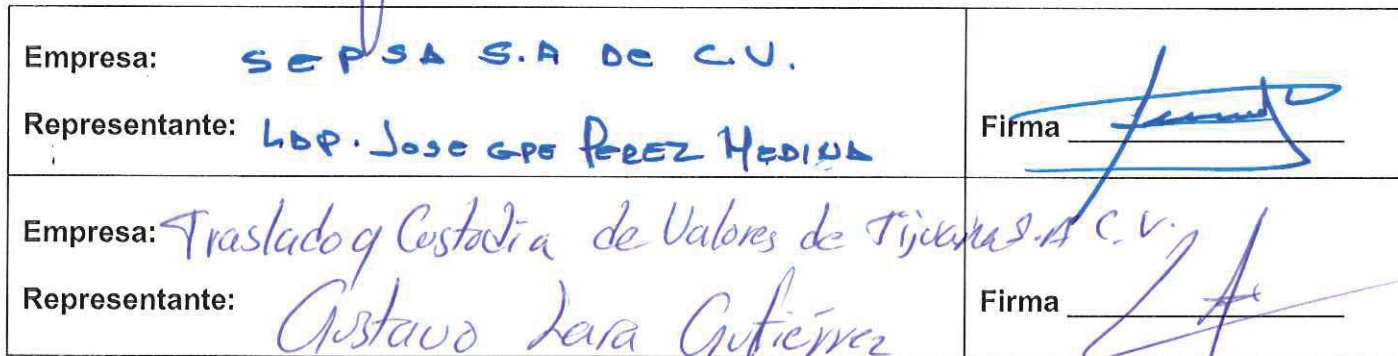 Empresa: SEPSA S.A DE C.V.
Representante: LDP. JOSE GPE PEREZ MEDINA
Firma
Empresa: Traslado y Custodia de Valores de Tijuana S.A C.V.
Representante: Gustavo Lara Gutiérrez
Firma